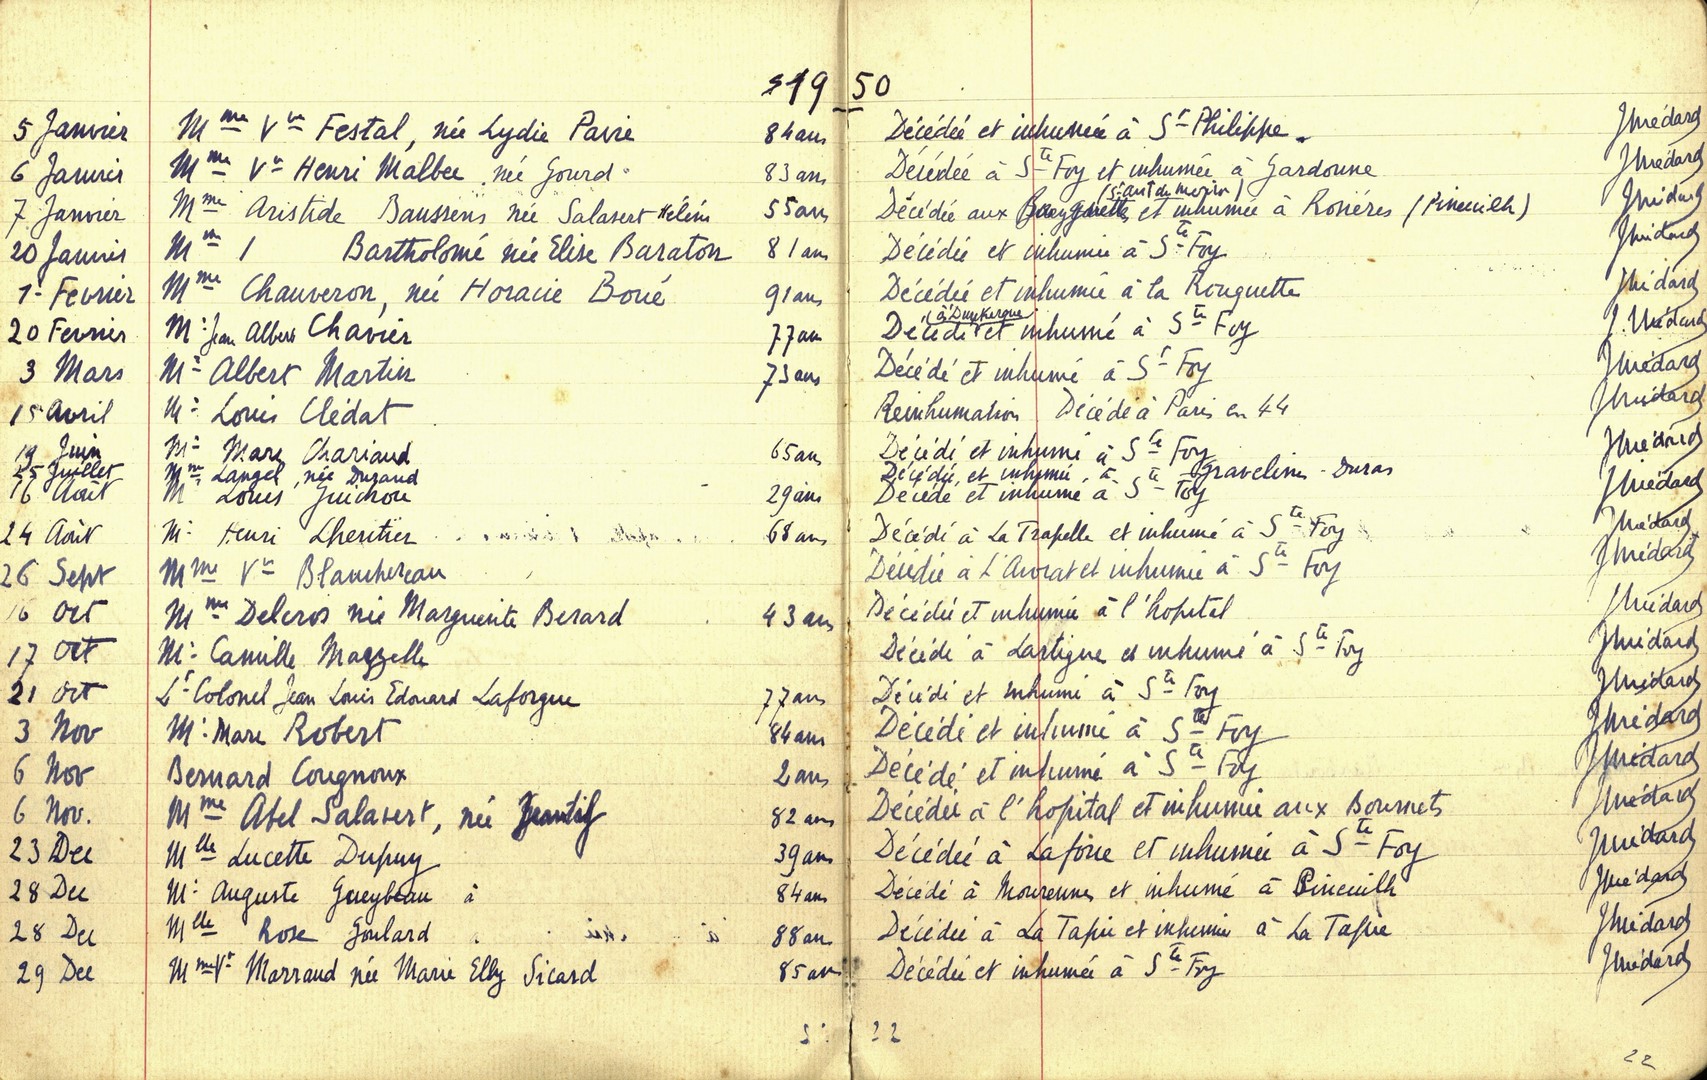 1950
5 Janvier Mme Vve Festal, née Lydie Pavie 84 ans Décédée et inhumée à St Philippe. JMédard
6 Janvier Mme Vve Henri Malbec née Gourd 83 ans Décédée à Ste Foy et inhumée à Gardonne JMédard
(St Ant. du
7 Janvier Mme Aristide Baussens née Salabert Hélène 55 ans Décédée aux et inhumée à Rosières (Pineuilh) JMédard
20 Janvier Mme Bartholomé née Elise Baraton 81 ans Décédée et inhumée à Ste Foy JMédard
1er Fevrier Mme Chauveron, née Horacie Boué 91 ans Décédée et inhumée à la Rouquette JMédard
(à Dunkerque)
20 Fevrier Mr Jean Albert Chavier 77 ans Décédé et inhumé à Ste Foy J. Médard
3 Mars Mr Albert Martin 73 ans Décédé et inhumé à St Foy JMédard
15 Avril Mr Louis Clédat Reinhumation Décédé à Paris en 44 JMédard
19 Juin Mr Marc Chariaud 65 ans Décédé et inhumé à Ste Foy JMédard
25 Juillet Mme Langel, née Durand Décédée et inhumée à Ste Graveline - Duras
16 Août Mr Louis Guichou 29 ans Décédé et inhumé à Ste Foy JMédard
24 Août Mr Henri Lheritier 68 ans Décédé à La Trapelle et inhumé à Ste Foy JMédard
26 Sept Mme Vve Blanchereau Décédée à L'Avocat et inhumée à Ste Foy JMédard
16 Oct Mme Delcros née Marguerite Berard 43 ans Décédée et inhumée à l'hopital JMédard
17 Oct Mr Camille Mazelle Décédé à Lartigue et inhumé à Ste Foy JMédard
21 Oct Lt Colonel Jean Louis Edouard Laforgue 77 ans Décédé et inhumé à Ste Foy JMédard
3 Nov Mr Marc Robert 84 ans Décédé et inhumé à Ste Foy JMédard
6 Nov Bernard Cougnoux 2 ans Décédé et inhumé à Ste Foy JMédard
6 Nov. Mme Abel Salabert, née Jeantil 82 ans Décédée à l'hopital et inhumée aux Bournets JMédard
23 Dec Mlle Lucette Dupuy 39 ans Décédée à Laforce et inhumée à Ste Foy JMédard
28 Dec Mr Auguste Gueybeau à 84 ans Décédé à Mourennes et inhumé à Pineuilh JMédard
28 Dec Mlle Rose Goulard 88 ans Décédée à La Tapie et inhumée à La Tapie JMédard
29 Dec Mme Vve Marraud née Marie Elly Sicard 85 ans Décédée et inhumée à Ste Foy JMédard
22
22